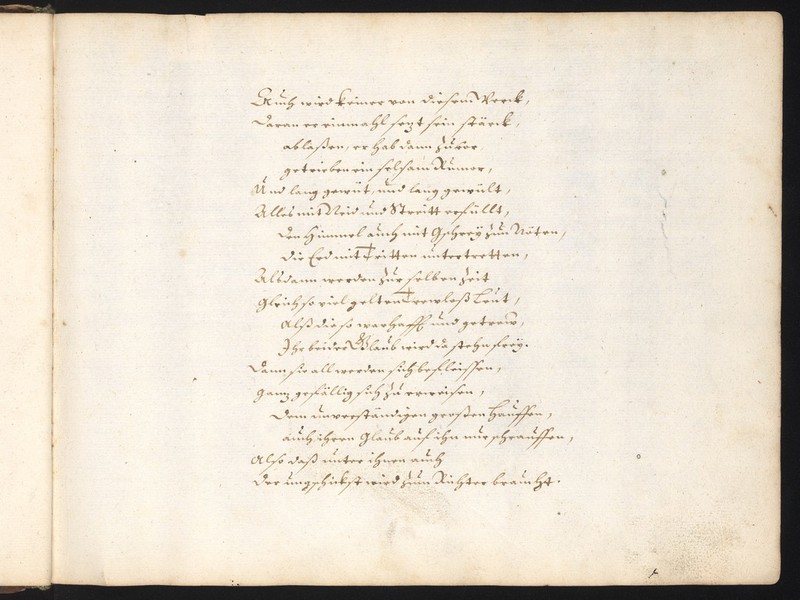 Auch wird keiner von diesem Werck,
Daran er einmahl sezt sein stärck,
ablaßen, er hab dann zuvor
getrieben ein selsam Rumor,
Und lang gewüt, und lang gewült,
Alles mit Neid und Streitt erfüllt,
den Himmel auch mit Gschrey zun Nöten,
die Erd mit Tritten untertretten,
Alsdann werden zur selben Zeit
Gleich so viel gelten Trewloß Leut,
Alß die so warhafft und getrew,
Ihr beider Glaub wird da stehn frey.
Dann sie all werden sich befleissen,
Ganz gefällig sich zu erweisen,
Dem unverständigen großen Hauffen,
auch ihren Glaub auf ihn nur schrauffen,
Also daß unter ihnen auch
Der ungschickst wird zum Richter braucht.